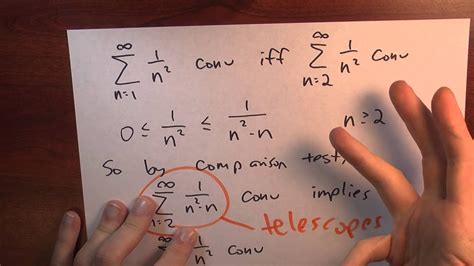 ∞∑n=1 1/n² Conv iff ∞∑n=2 1/n² Conv
0 ≤ 1/n² ≤ 1/(n²-n) n ≥ 2
So by Comparison test,
∞∑n=2 1/(n²-n) Conv implies
telescopes
∞∑ 1/n² Conv